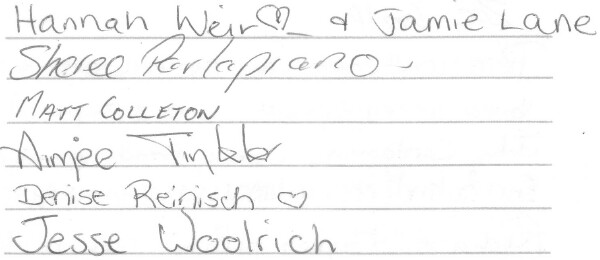 Hannah Weir♡ & Jamie Lane
Sheree Parlapiano
MATT COLLETON
Aimee Tinkler
Denise Reinisch ♡
Jesse Woolrich